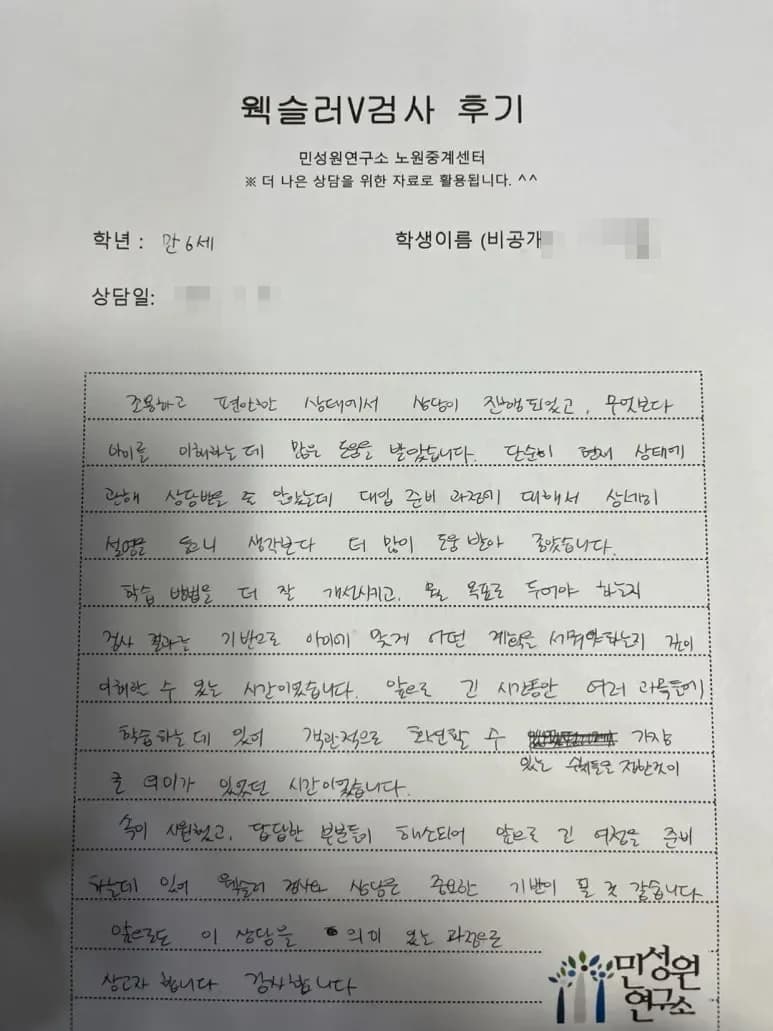 웩슬러V검사 후기
민성원연구소 노원중계센터
※ 더 나은 상담을 위한 자료로 활용됩니다. ^^
학년 : 만 6세
학생이름 (비공개
상담일:
조용하고 편안한 상태에서 상담이 진행되었고, 무엇보다
아이를 이해하는데 많은 도움을 받았습니다. 단순히 현재 상태에
관해 상담받을 줄 알았는데 대입 준비 과정에 대해서 상세히
설명을 들으니 생각보다 더 많이 도움 받아 좋았습니다.
학습 방법을 더 잘 개선시키고, 목표로 두어야 하는지
검사 결과를 기반으로 아이에 맞게 어떤 계획을 세워야하는지 깊이
이해할 수 있는 시간이었습니다. 앞으로 긴 시간동안 여러 과목들에
학습하는데 있어 객관적으로 확인할 수 가장
있는 수치들을 접한것이
큰 의미가 있었던 시간이었습니다.
속이 시원했고, 답답한 부분들이 해소되어 앞으로 긴 여정을 준비
하는데 있어 웩슬러 검사와 상담은 중요한 기반이 될 것 같습니다
앞으로도 이 상담을 의미 있는 과정으로
삼고자 합니다 감사합니다
민성원
연구소